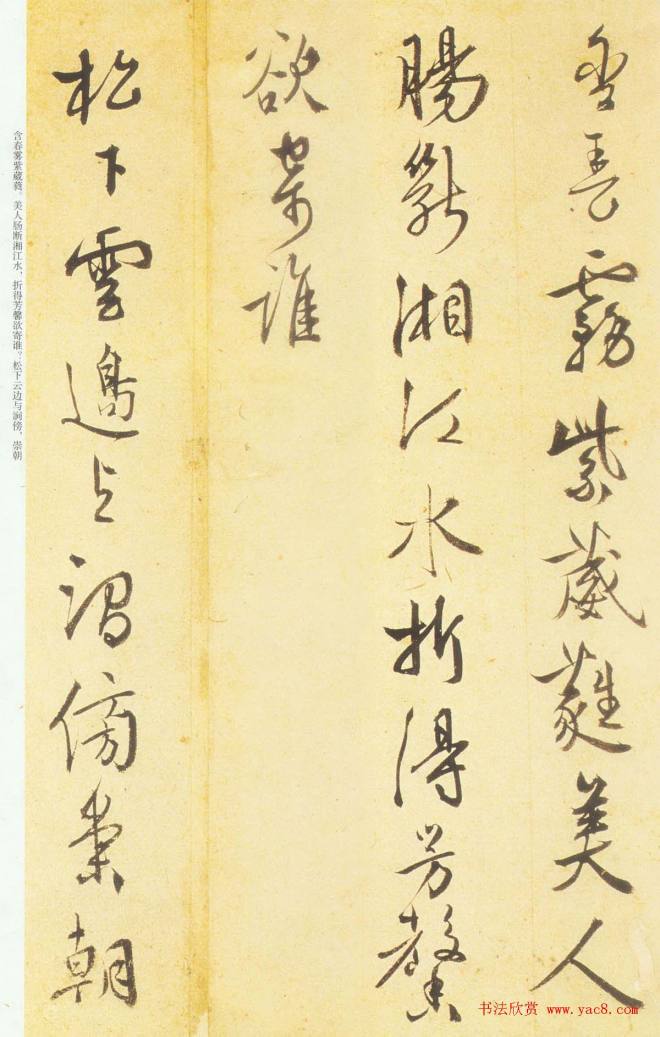 含春霧紫葳蕤美人
腸斷湘江水折得芳馨
欲寄誰
松下雲邊与澗傍崇朝
含春雾紫葳蕤。美人肠断湘江水，折得芳馨欲寄谁？松下云边与涧傍，崇朝
书法欣赏 www.yac8.com